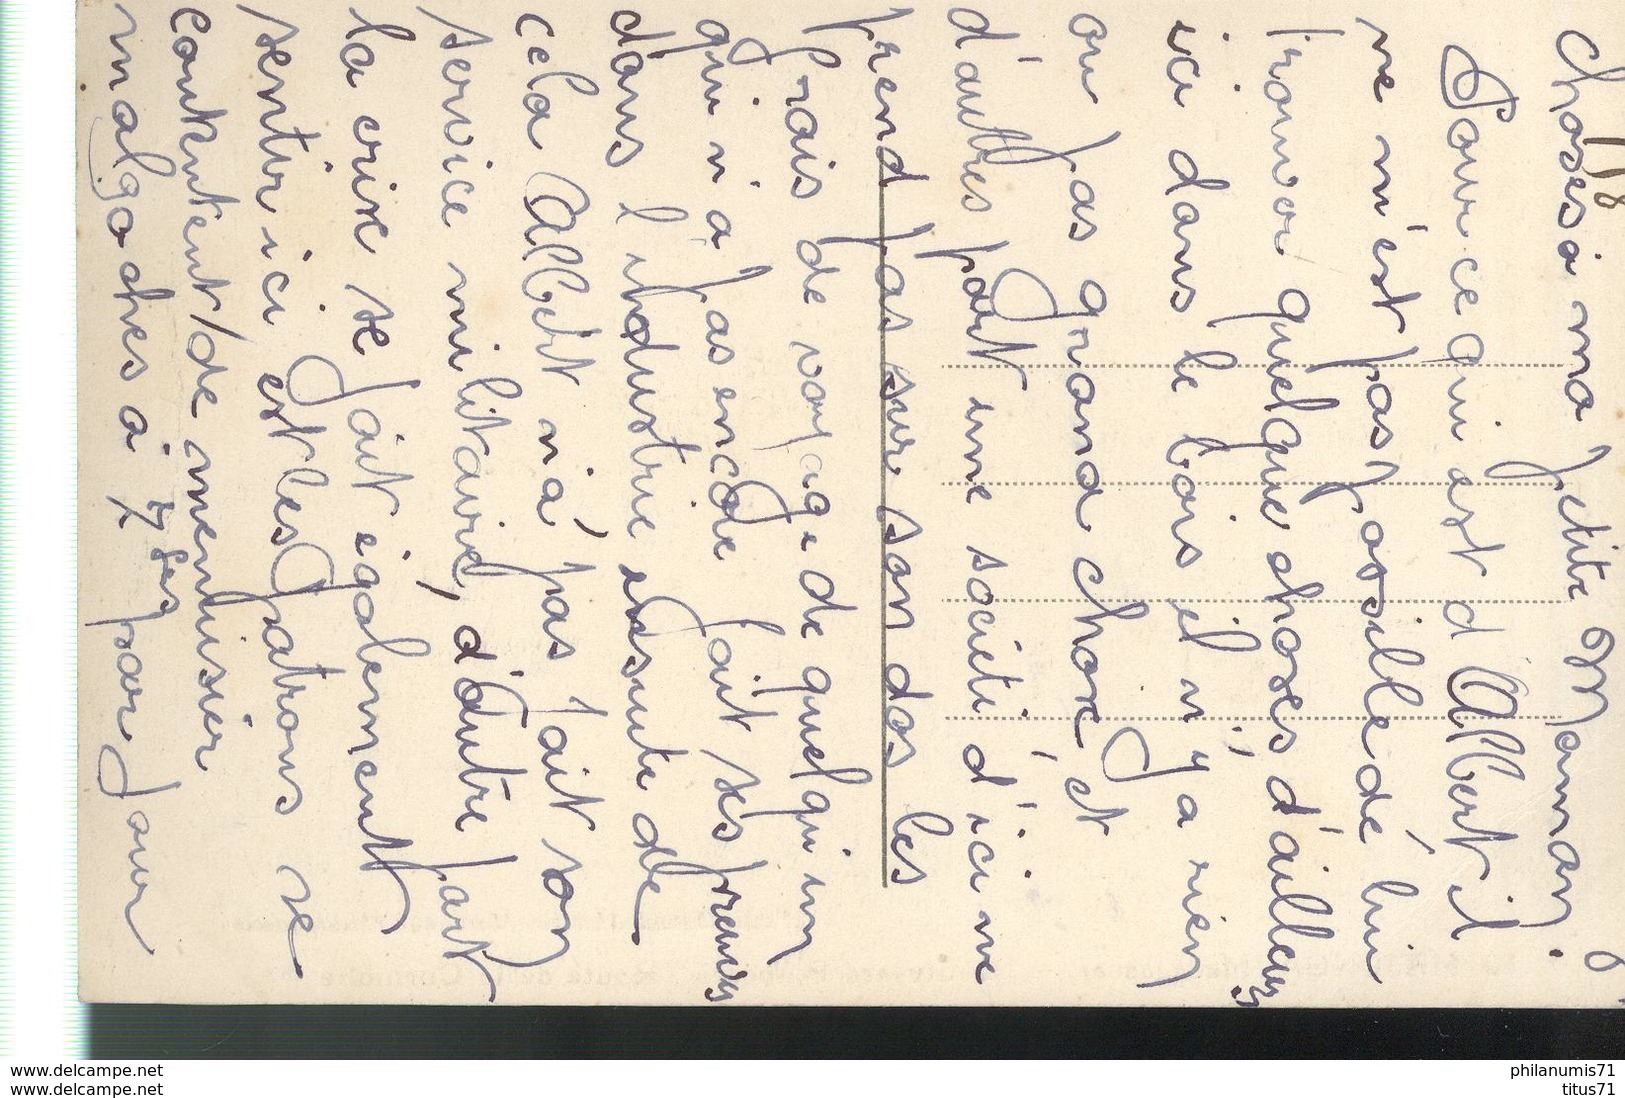 choses à ma petite Maman.
Pour ce qui est d'Albert il
ne m'est pas possible dé lui
trouver quelque choses d'ailleurs
ici dans le bois il n'y a rien
ou pas grand chose et
d'autres part une société d'ici ne
prend pas sur son dos les
frais de voyage de quelqu'un
qui n'a pas encore fait ses preuves
dans l'industrie ensuite de
cela Albert n'a pas fait son
service militaire, d'autre part
la crise se fait également
sentir ici et les patrons se
contentent de menuisier
malgaches à 7 frs par jour
118
philanumis71
philanumis71
titus71
titus71